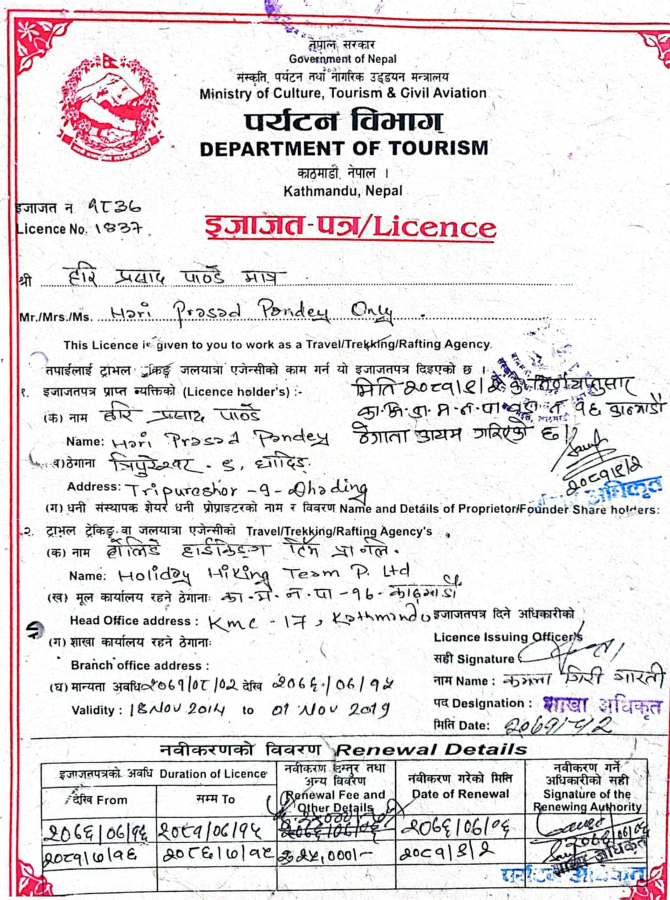 नेपाल सरकार
Government of Nepal
संस्कृति, पर्यटन तथा नागरिक उड्डयन मन्त्रालय
Ministry of Culture, Tourism & Civil Aviation
पर्यटन विभाग
DEPARTMENT OF TOURISM
काठमाडौं, नेपाल ।
Kathmandu, Nepal
इजाजत नं १८३७
Licence No. 1837
इजाजत-पत्र/Licence
श्री हरि प्रसाद पाण्डे मात्र
Mr./Mrs./Ms. Hari Prasad Pandey Only
This Licence is given to you to work as a Travel/Trekking/Rafting Agency.
तपाईलाई ट्राभल ट्रेकिङ्ग जलयात्रा एजेन्सीको काम गर्न यो इजाजतपत्र दिइएको छ ।
१. इजाजतपत्र प्राप्त व्यक्तिको (Licence holder's) :-
मिति २०८१/७/२
(क) नाम हरि प्रसाद पाण्डे
Name: Hari Prasad Pandey
ठेगाना कायम गरिएको छ।
(ख) ठेगाना त्रिपुरेश्वर - ९, धादिङ
Address: Tripureshor -9- Dhading
(ग) धनी संस्थापक शेयर धनी प्रोप्राइटरको नाम र विवरण Name and Details of Proprietor/Founder Share holders:
२. ट्राभल ट्रेकिङ्ग वा जलयात्रा एजेन्सीको Travel/Trekking/Rafting Agency's
(क) नाम होलिडे हाईकिङ्ग टिम प्रा.लि.
Name: Holiday Hiking Team P. Ltd
(ख) मूल कार्यालय रहने ठेगानाः का.म.न.पा-१७- काठमाडौं
Head Office address : Kmc - 17, Kathmandu
इजाजतपत्र दिने अधिकारीको
(ग) शाखा कार्यालय रहने ठेगानाः
Licence Issuing Officer's
Branch office address :
सही Signature
(घ) मान्यता अवधि २०७१/०८/०२ देखि २०७६/०७/१५
नाम Name : कमला गिरी भारती
Validity : 18 Nov 2014 to 01 Nov 2019
पद Designation : शाखा अधिकृत
मिति Date:
नवीकरणको विवरण Renewal Details
इजाजतपत्रको अवधि Duration of Licence
देखि From
सम्म To
नवीकरण दस्तुर तथा अन्य विवरण
Renewal Fee and Other Details
नवीकरण गरेको मिति
Date of Renewal
नवीकरण गर्ने अधिकारीको सही
Signature of the Renewing Authority
२०७६/०७/१६ २०८१/०७/१५ २०७६/०७/०६
२०८१/७/१६ २०८६/७/१५ रु २५,०००/- २०८१/७/२
शाखा अधिकृत
पर्यटन अधिकृत